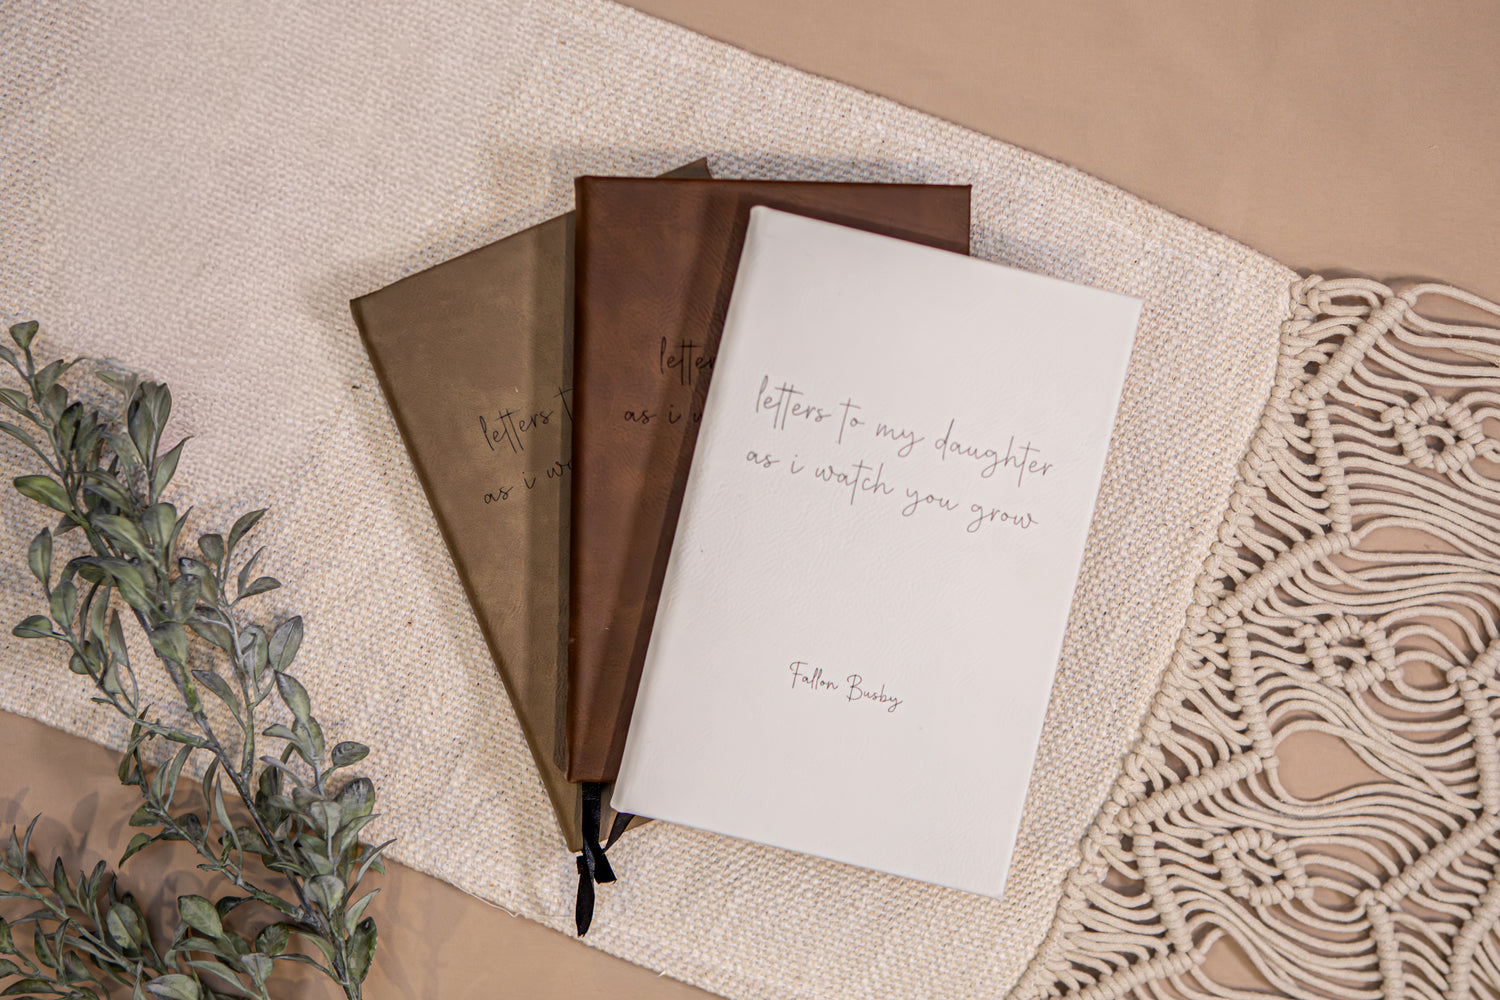 letters to
as i
letters
as i
letters to my daughter
as i watch you grow
Fallon Busby